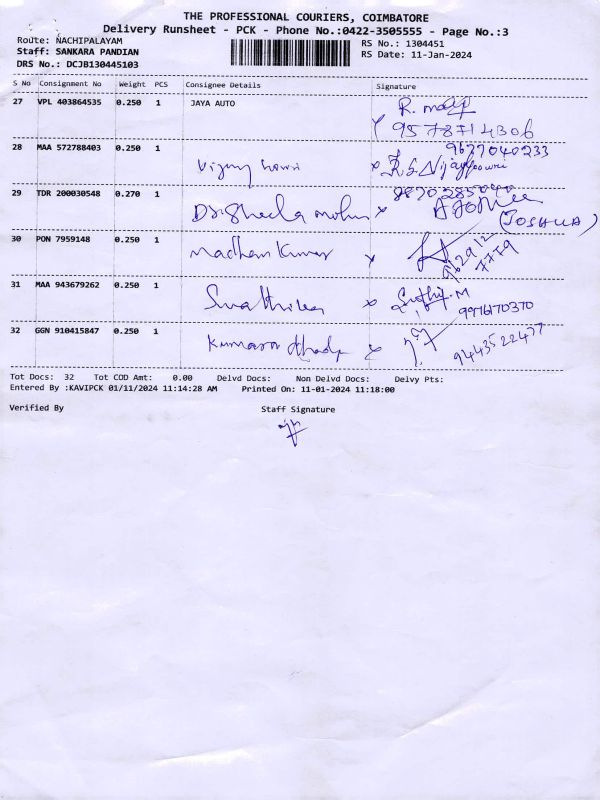 THE PROFESSIONAL COURIERS, COIMBATORE
Delivery Runsheet - PCK - Phone No.:0422-3505555 - Page No.:3
Route: NACHIPALAYAM
RS No.: 1304451
Staff: SANKARA PANDIAN
RS Date: 11-Jan-2024
DRS No.: DCJB130445103
S No Consignment No Weight PCS Consignee Details Signature
27 VPL 403864535 0.250 1 JAYA AUTO
9578714306
28 MAA 572788403 0.250 1
9677040233
29 TDR 200030548 0.270 1 Dr. Sheela mohan x
(JOSHUA)
30 PON 7959148 0.250 1 Madhan Kumar x
31 MAA 943679262 0.250 1 x
9976170370
32 GGN 910415847 0.250 1 x
9443522477
Tot Docs: 32 Tot COD Amt: 0.00 Delvd Docs: Non Delvd Docs: Delvy Pts:
Entered By :KAVIPCK 01/11/2024 11:14:28 AM Printed On: 11-01-2024 11:18:00
Verified By Staff Signature